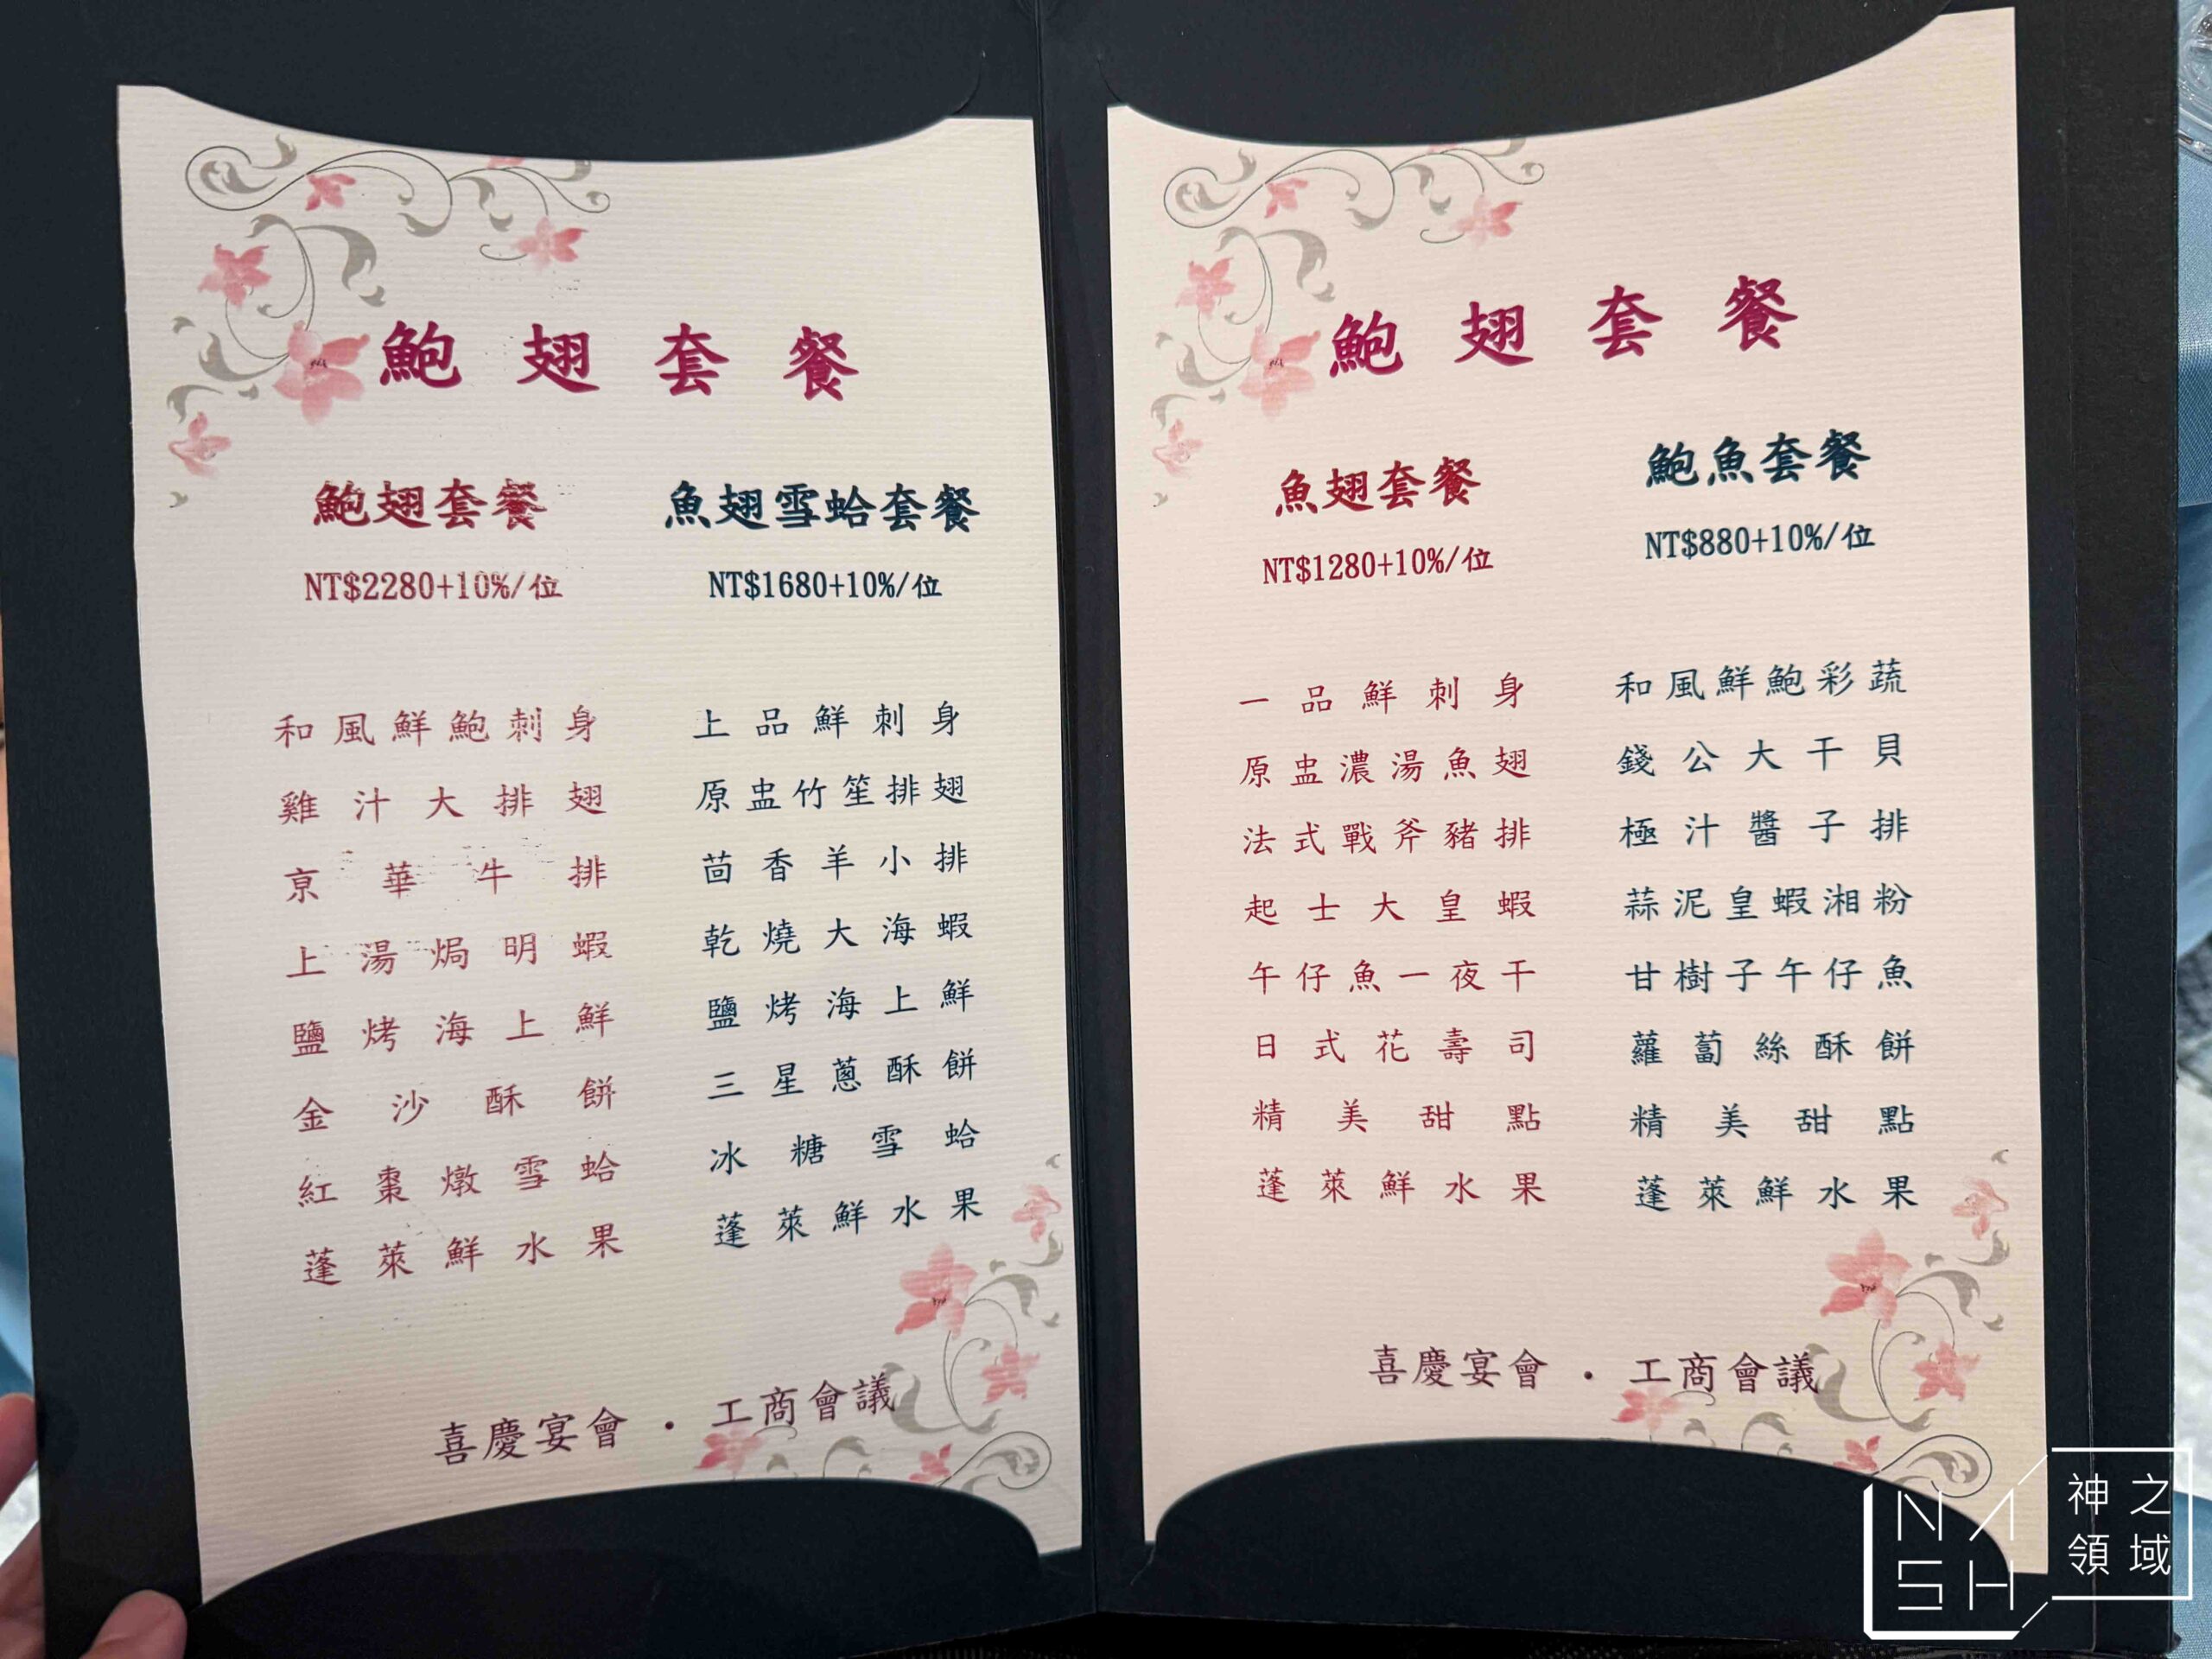 鮑翅套餐
鮑翅套餐
NT$2280+10%/位
和風鮮鮑刺身
雞汁大排翅
京華牛排
上湯焗明蝦
鹽烤海上鮮
金沙酥餅
紅棗燉雪蛤
蓬萊鮮水果
魚翅雪蛤套餐
NT$1680+10%/位
上品鮮刺身
原盅竹笙排翅
茴香羊小排
乾燒大海蝦
鹽烤海上鮮
三星蔥酥餅
冰糖雪蛤
蓬萊鮮水果
喜慶宴會・工商會議
鮑翅套餐
魚翅套餐
NT$1280+10%/位
一品鮮刺身
原盅濃湯魚翅
法式戰斧豬排
起士大皇蝦
午仔魚一夜干
日式花壽司
精美甜點
蓬萊鮮水果
鮑魚套餐
NT$880+10%/位
和風鮮鮑彩蔬
錢公大干貝
極汁醬子排
蒜泥皇蝦湘粉
甘樹子午仔魚
蘿蔔絲酥餅
精美甜點
蓬萊鮮水果
喜慶宴會・工商會議
NASH
神之領域